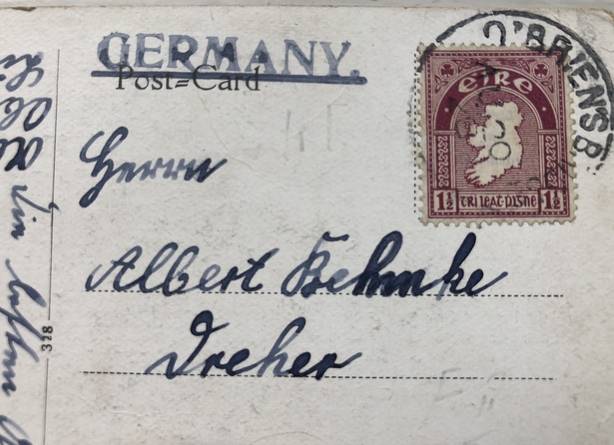 GERMANY.
Post=Card
O'BRIENSB
éIRe
1½ τRí leaτ-ρisne 1½
Herrn
Albert Behmke
Dreher
318